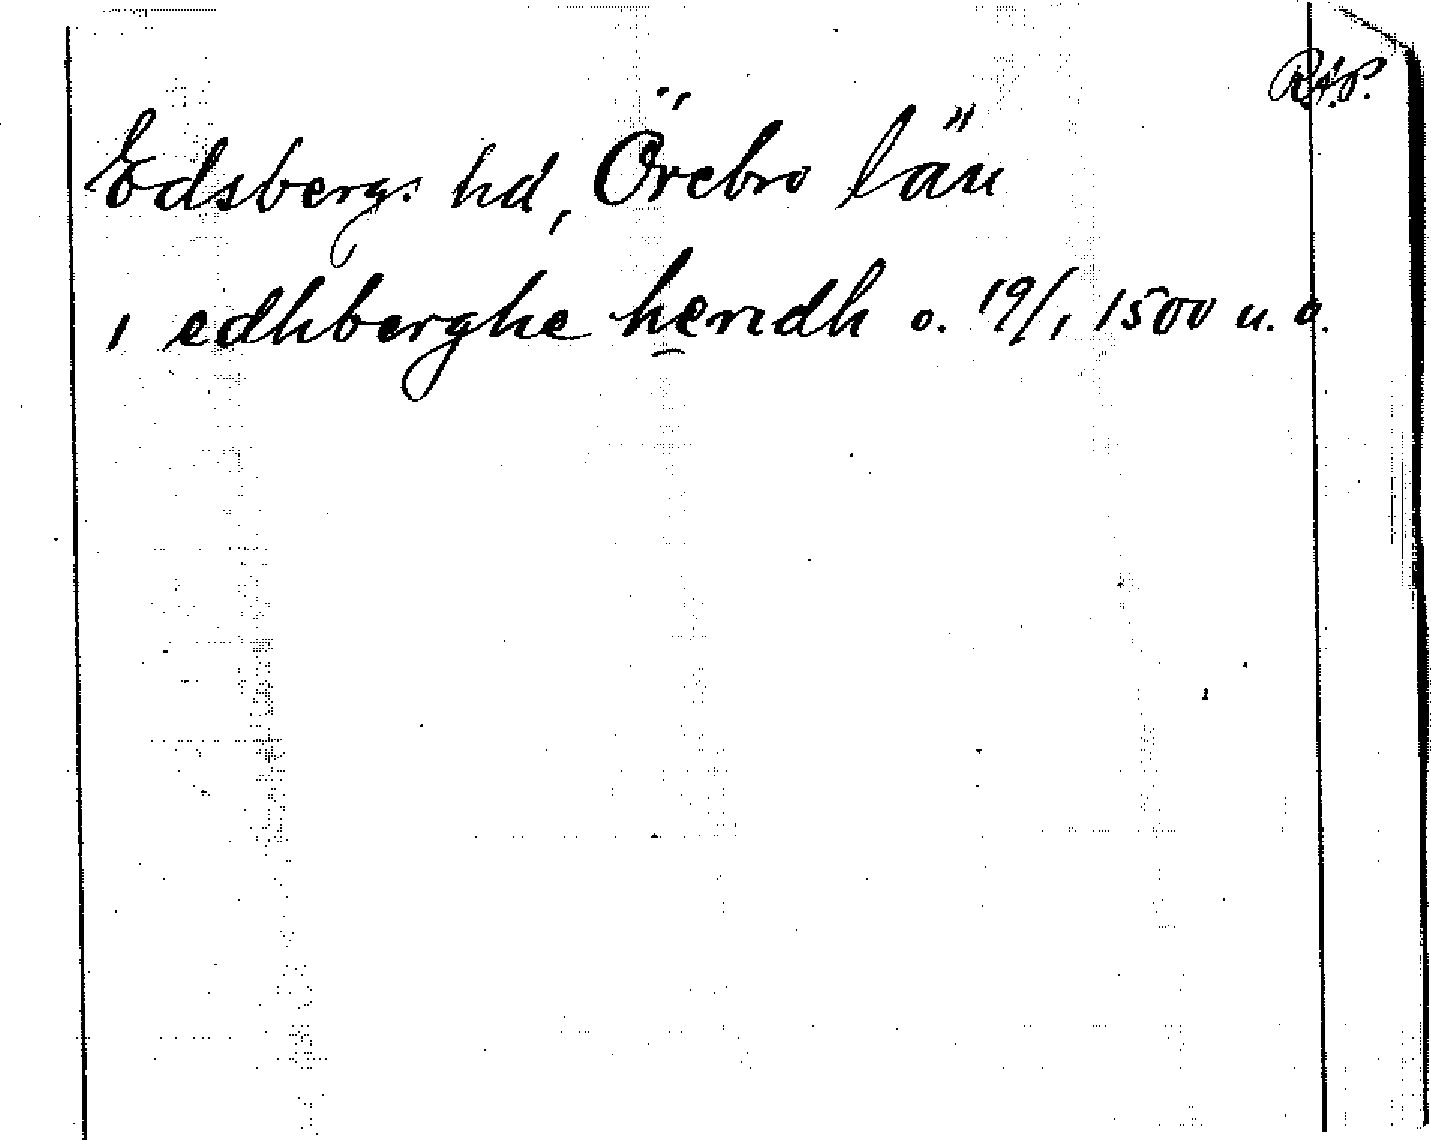 RAP.
Edsbergs hd, Örebro län
i edhberghe heridh o. 19/1 1500 u. a.